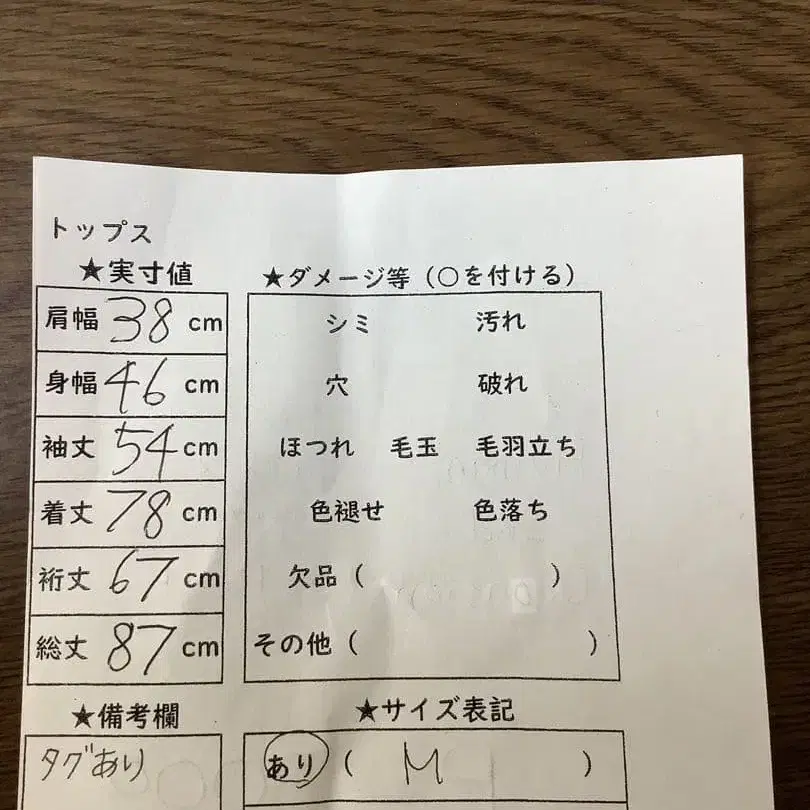 トップス
★実寸値
肩幅 38 cm
身幅 46 cm
袖丈 54 cm
着丈 78 cm
裄丈 67 cm
総丈 87 cm
★ダメージ等（○を付ける）
シミ 汚れ
穴 破れ
ほつれ 毛玉 毛羽立ち
色褪せ 色落ち
欠品（ ）
その他（ ）
★備考欄
タグあり
★サイズ表記
あり（ M ）